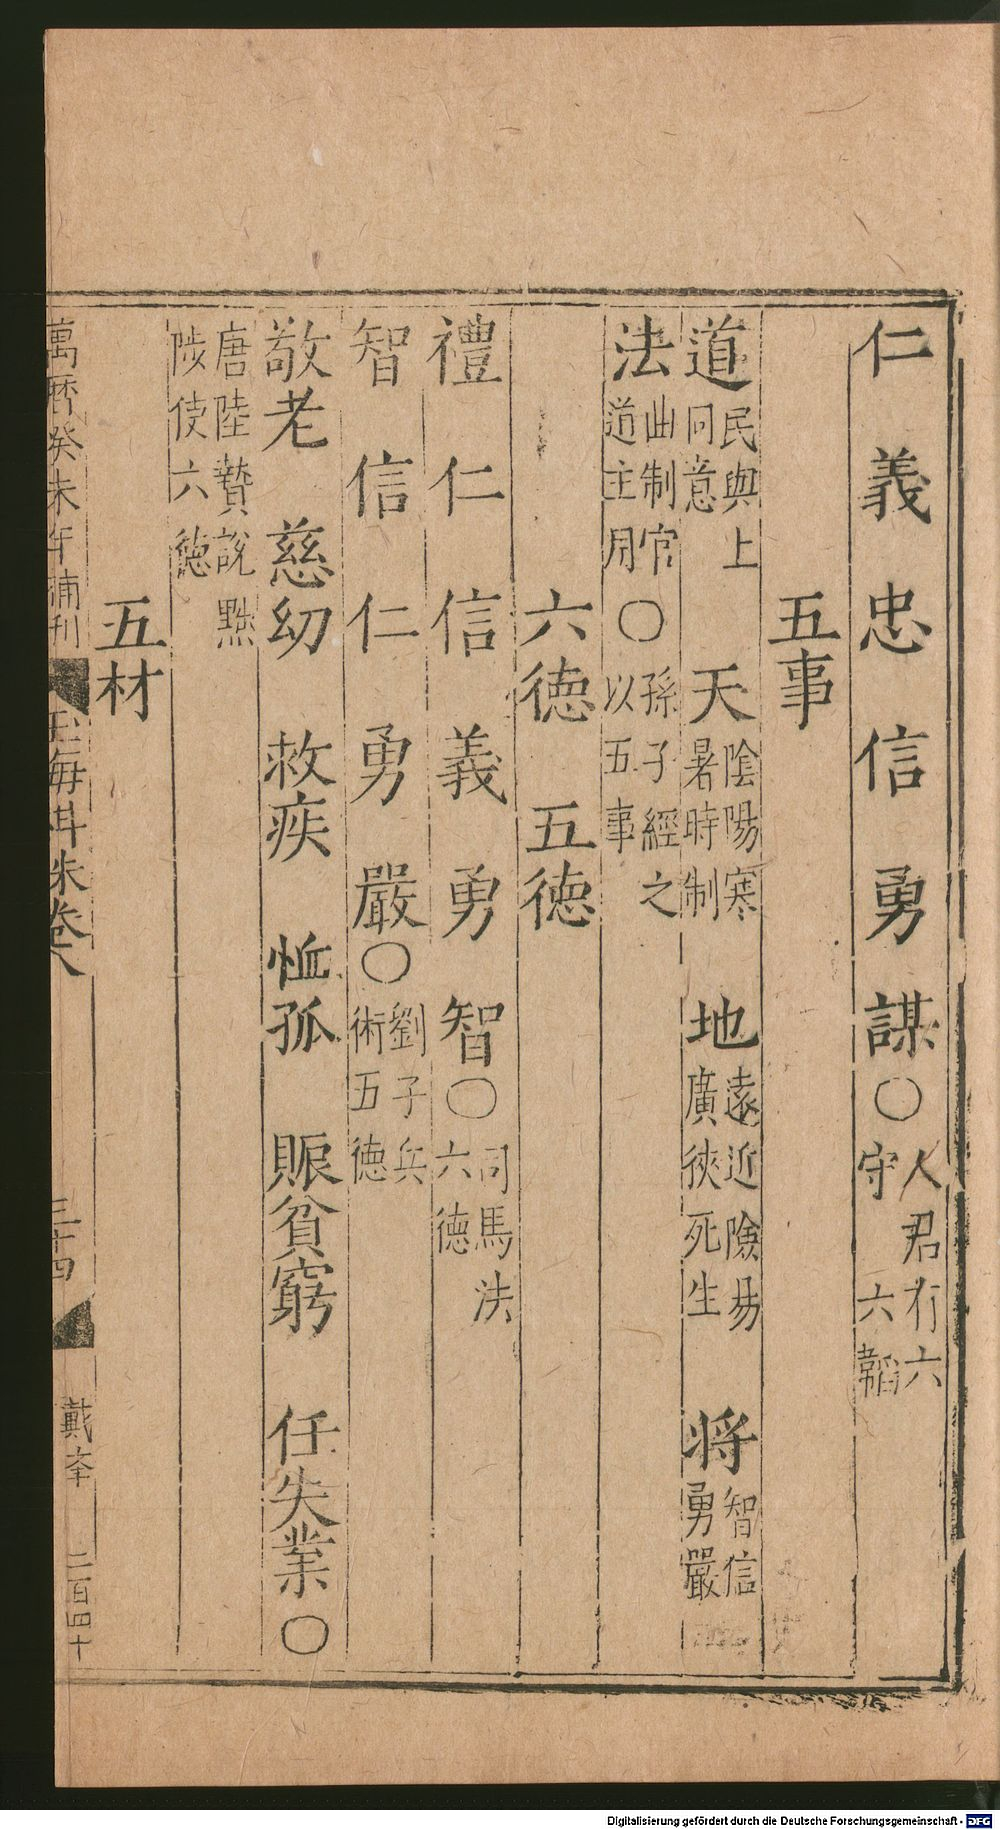 仁 義 忠 信 勇 謀〇人君有六守 六韜
五事
道民與上同意 天陰陽寒暑時制 地遠近險易廣狹死生 將智信勇嚴
法曲制官道主用〇孫子經之以五事
六德 五德
禮 仁 信 義 勇 智〇司馬法六德
智 信 仁 勇 嚴〇劉子兵術五德
敬老 慈幼 救疾 恤孤 賑貧窮 任失業〇
唐陸贄說黜陟使六德
五材
萬曆癸未年補刊 玉海 卷八 三十四 戴 二百四十
Digitalisierung gefördert durch die Deutsche Forschungsgemeinschaft - DFG